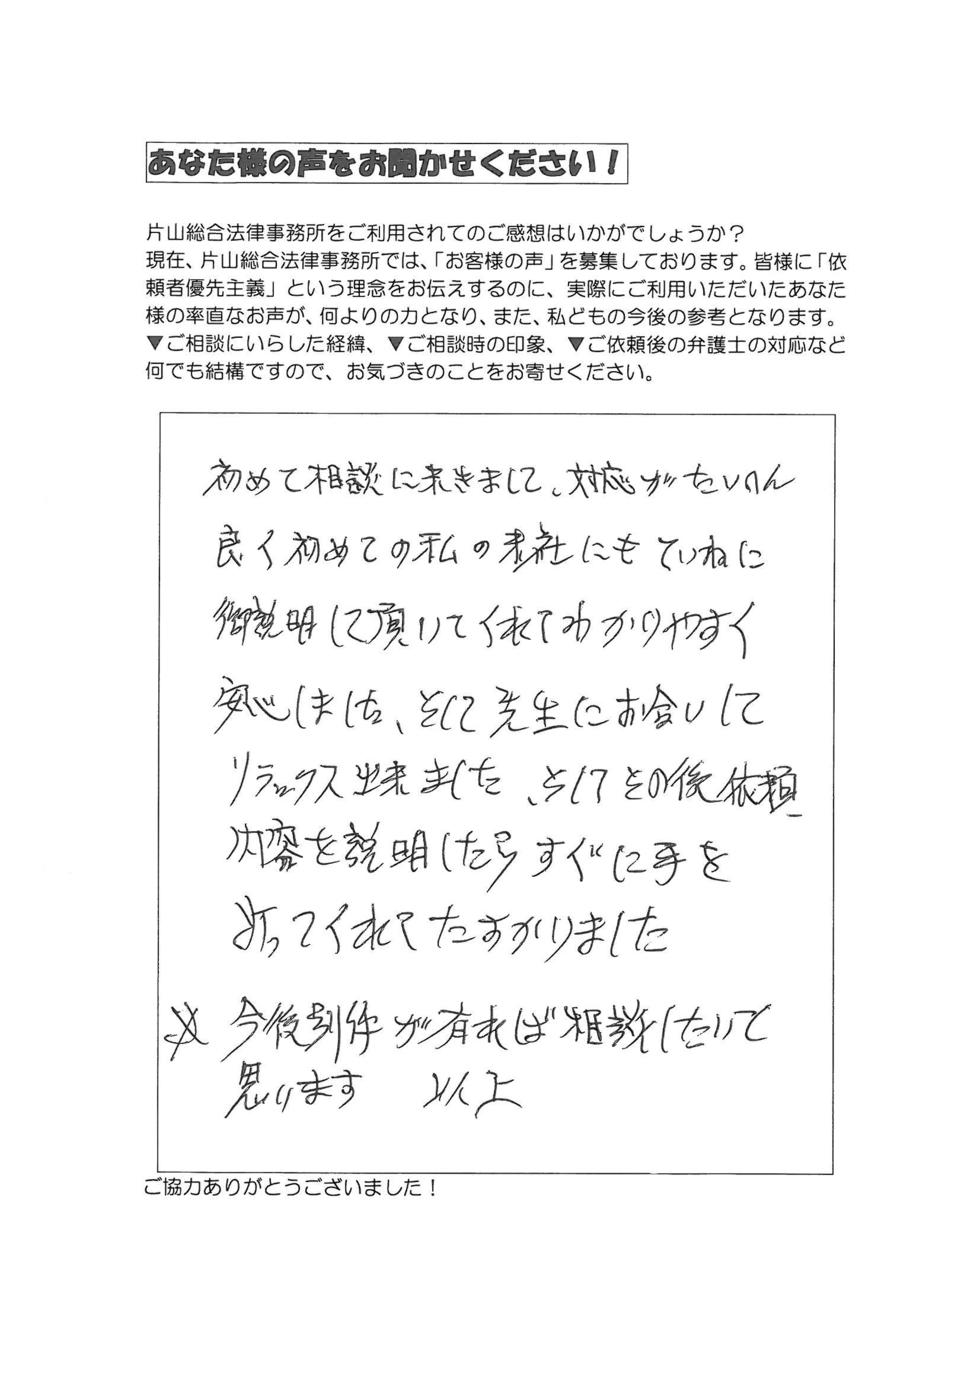 あなた様の声をお聞かせください！
片山総合法律事務所をご利用されてのご感想はいかがでしょうか？
現在、片山総合法律事務所では、「お客様の声」を募集しております。皆様に「依
頼者優先主義」という理念をお伝えするのに、実際にご利用いただいたあなた
様の率直なお声が、何よりの力となり、また、私どもの今後の参考となります。
▼ご相談にいらした経緯、▼ご相談時の印象、▼ご依頼後の弁護士の対応など
何でも結構ですので、お気づきのことをお寄せください。
初めて相談に来きまして、対応がたいへん
良く初めての私の来社にもていねに
御説明して頂いてくれてわかりやすく
安心しました、そして先生にお会いして
リラックス出来ました、そしてその後依頼
内容を説明したらすぐに手を
打ってくれてたすかりました
☆ 今後別件が有れば相談したいで
思います 以上
ご協力ありがとうございました！